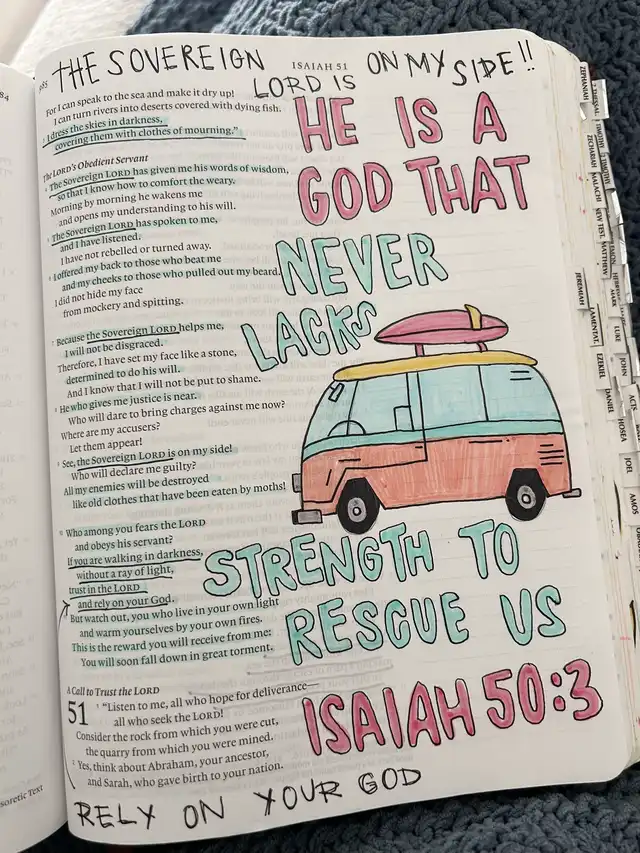 THE SOVEREIGN
LORD IS
ON MY SIDE!!
985
ISAIAH 51
For I can speak to the sea and make it dry up!
I can turn rivers into deserts covered with dying fish.
3 I dress the skies in darkness,
covering them with clothes of mourning.”
The LORD’s Obedient Servant
4 The Sovereign LORD has given me his words of wisdom,
so that I know how to comfort the weary.
Morning by morning he wakens me
and opens my understanding to his will.
5 The Sovereign LORD has spoken to me,
and I have listened.
I have not rebelled or turned away.
6 I offered my back to those who beat me
and my cheeks to those who pulled out my beard.
I did not hide my face
from mockery and spitting.
7 Because the Sovereign LORD helps me,
I will not be disgraced.
Therefore, I have set my face like a stone,
determined to do his will.
And I know that I will not be put to shame.
8 He who gives me justice is near.
Who will dare to bring charges against me now?
Where are my accusers?
Let them appear!
9 See, the Sovereign LORD is on my side!
Who will declare me guilty?
All my enemies will be destroyed
like old clothes that have been eaten by moths!
10 Who among you fears the LORD
and obeys his servant?
If you are walking in darkness,
without a ray of light,
trust in the LORD
and rely on your God.
11 But watch out, you who live in your own light
and warm yourselves by your own fires.
This is the reward you will receive from me:
You will soon fall down in great torment.
A Call to Trust the LORD
51 1 “Listen to me, all who hope for deliverance—
all who seek the LORD!
Consider the rock from which you were cut,
the quarry from which you were mined.
2 Yes, think about Abraham, your ancestor,
and Sarah, who gave birth to your nation.
HE IS A
GOD THAT
NEVER
LACKS
STRENGTH TO
RESCUE US
ISAIAH 50:3
RELY ON YOUR GOD
84
soretic Text
ZEPHANIAH
ZECHARIAH
MALACHI
NEW TEST.
MATTHEW
MARK
LUKE
JOHN
ACTS
JEREMIAH
LAMENTAT.
EZEKIEL
DANIEL
HOSEA
JOEL
AMOS
2 THESSAL.
1 TIMOTHY
2 TIMOTHY